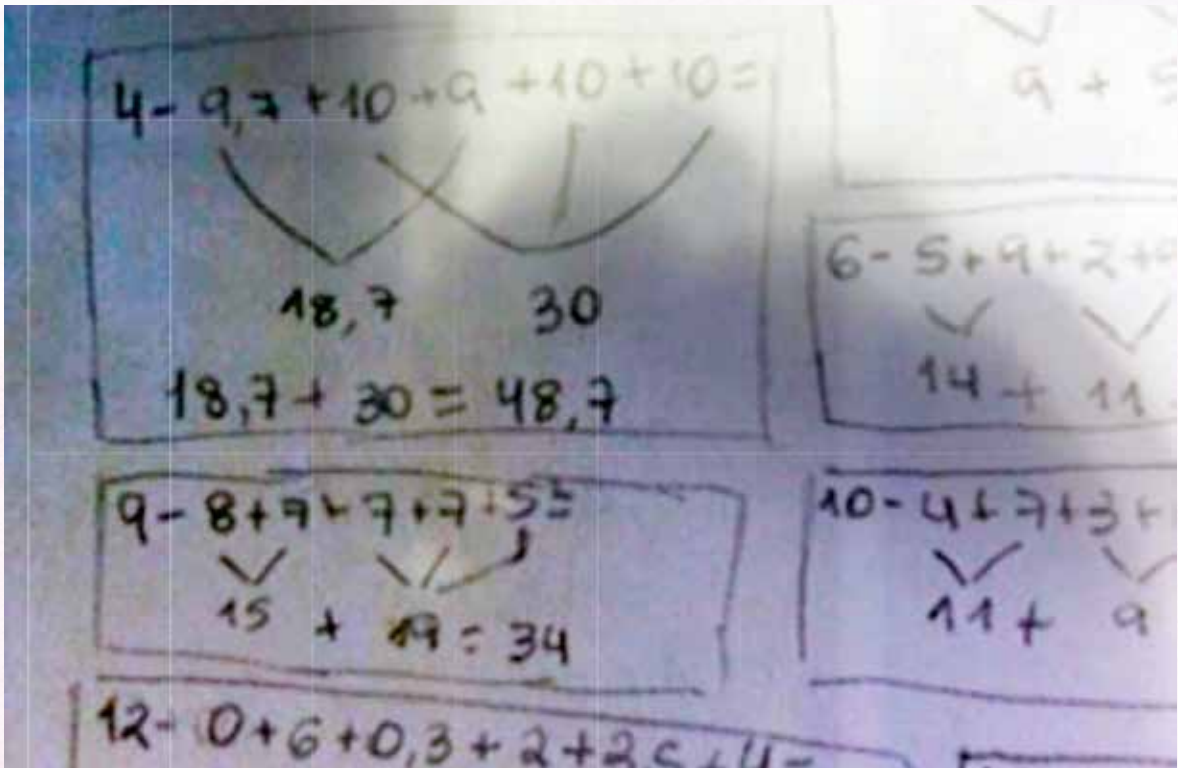 4- 9,7 +10 +9 +10 +10=
18,7 30
18,7 + 30 = 48,7
9 +
6- 5+9+2+
14 + 11
9- 8+7+7+7+5=
15 + 19 = 34
10- 4+7+3+
11 + 9
12- 0+6+0,3+2+2,5+4=